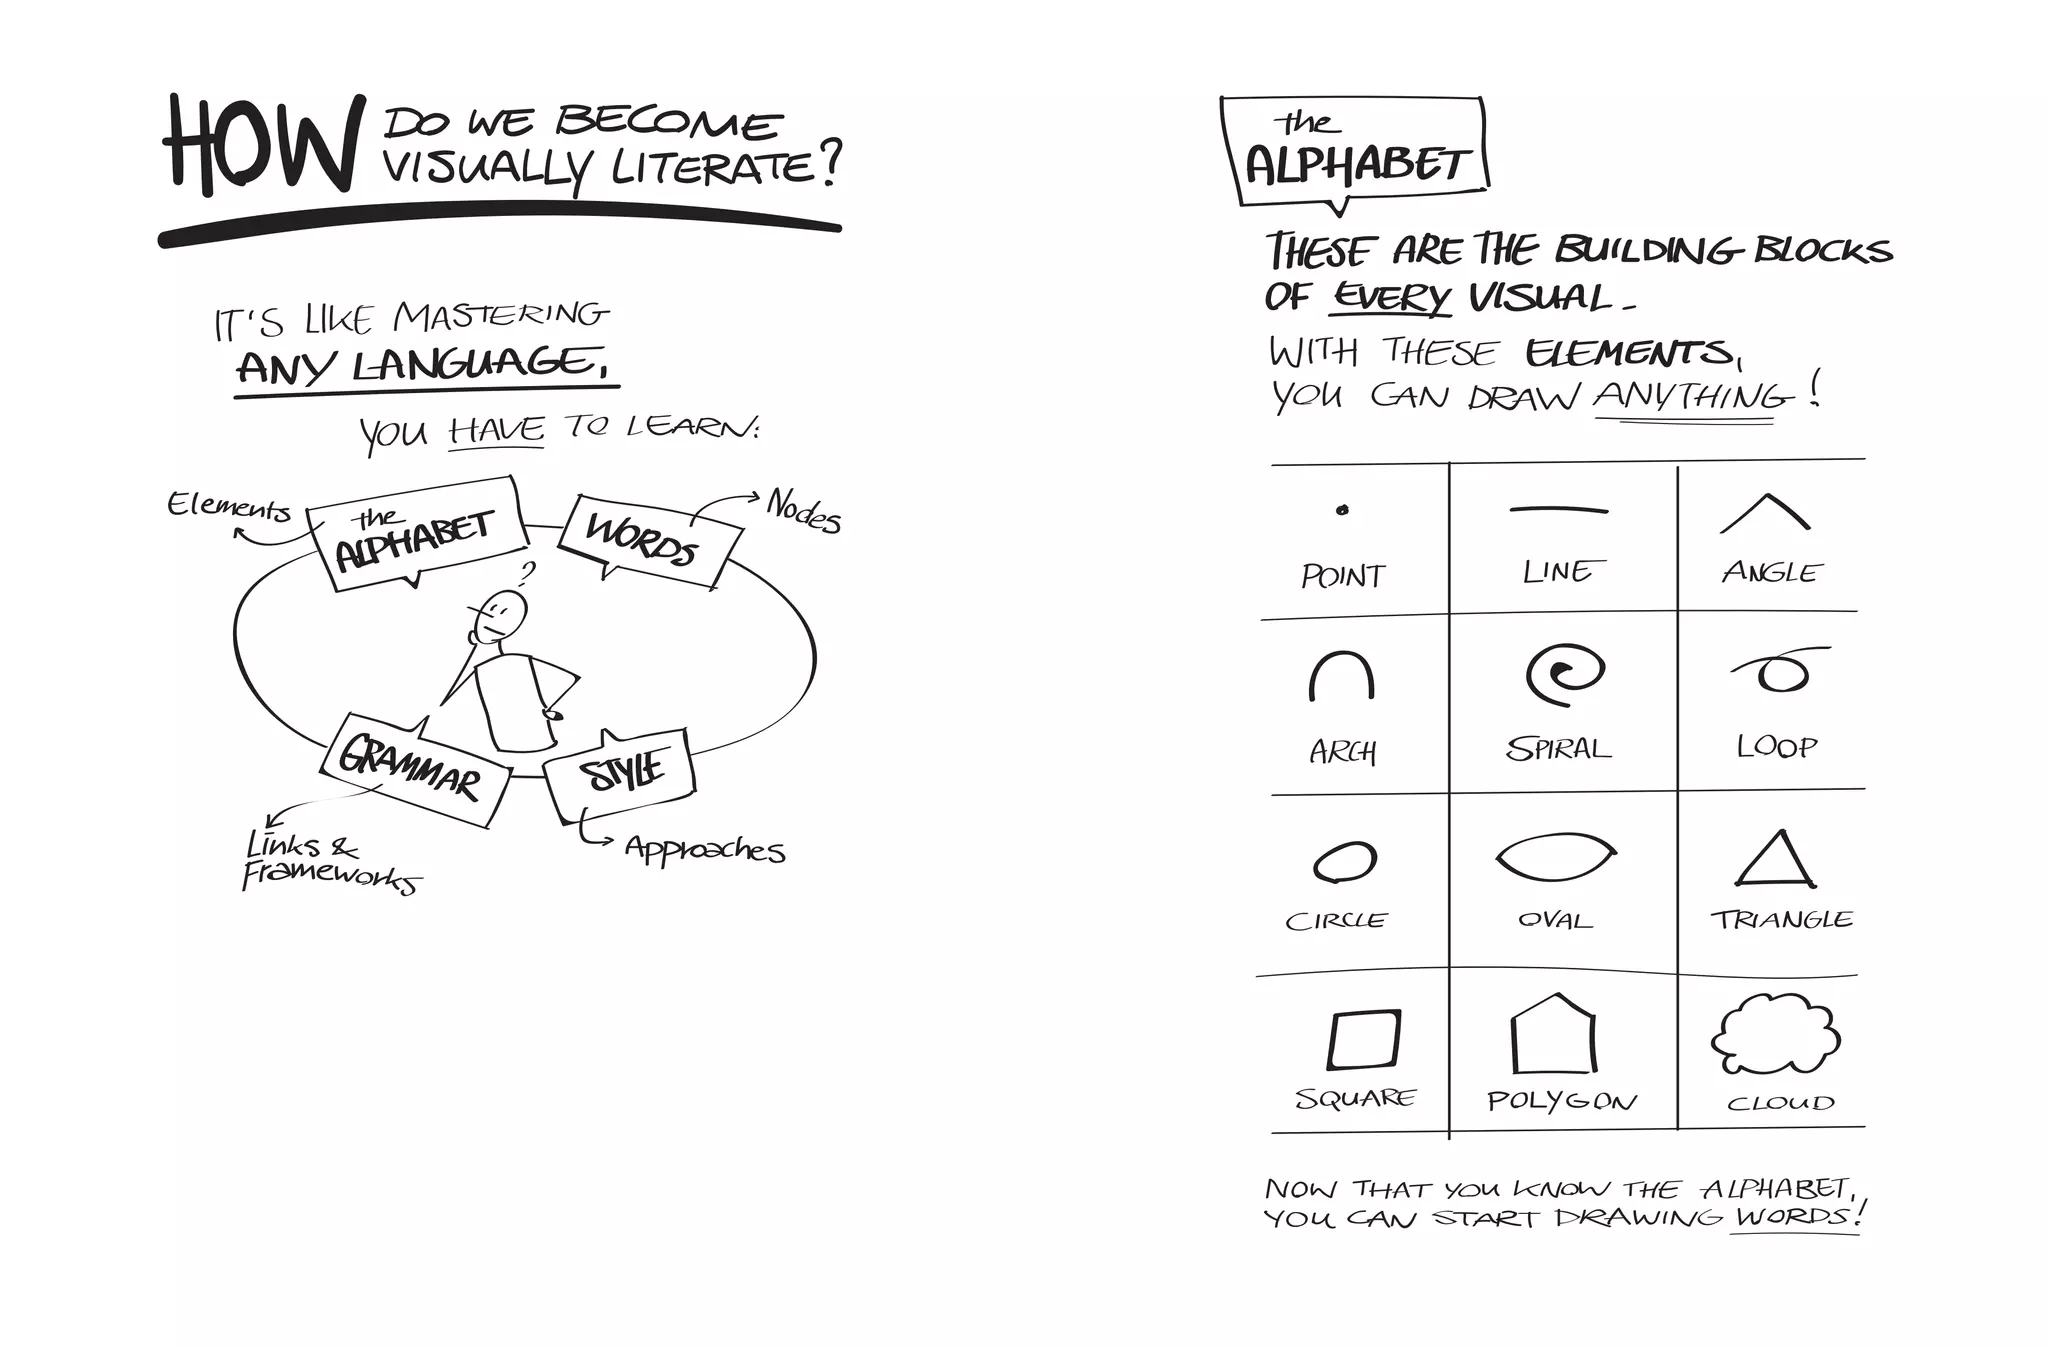 HOW DO WE BECOME
VISUALLY LITERATE?
IT'S LIKE MASTERING
ANY LANGUAGE.
YOU HAVE TO LEARN:
Elements
the
ALPHABET
WORDS
Nodes
?
GRAMMAR
STYLE
Links &
Frameworks
Approaches
the
ALPHABET
THESE ARE THE BUILDING BLOCKS
OF EVERY VISUAL.
WITH THESE ELEMENTS,
YOU CAN DRAW ANYTHING!
POINT
LINE
ANGLE
ARCH
SPIRAL
LOOP
CIRCLE
OVAL
TRIANGLE
SQUARE
POLYGON
CLOUD
NOW THAT YOU KNOW THE ALPHABET,
YOU CAN START DRAWING WORDS!